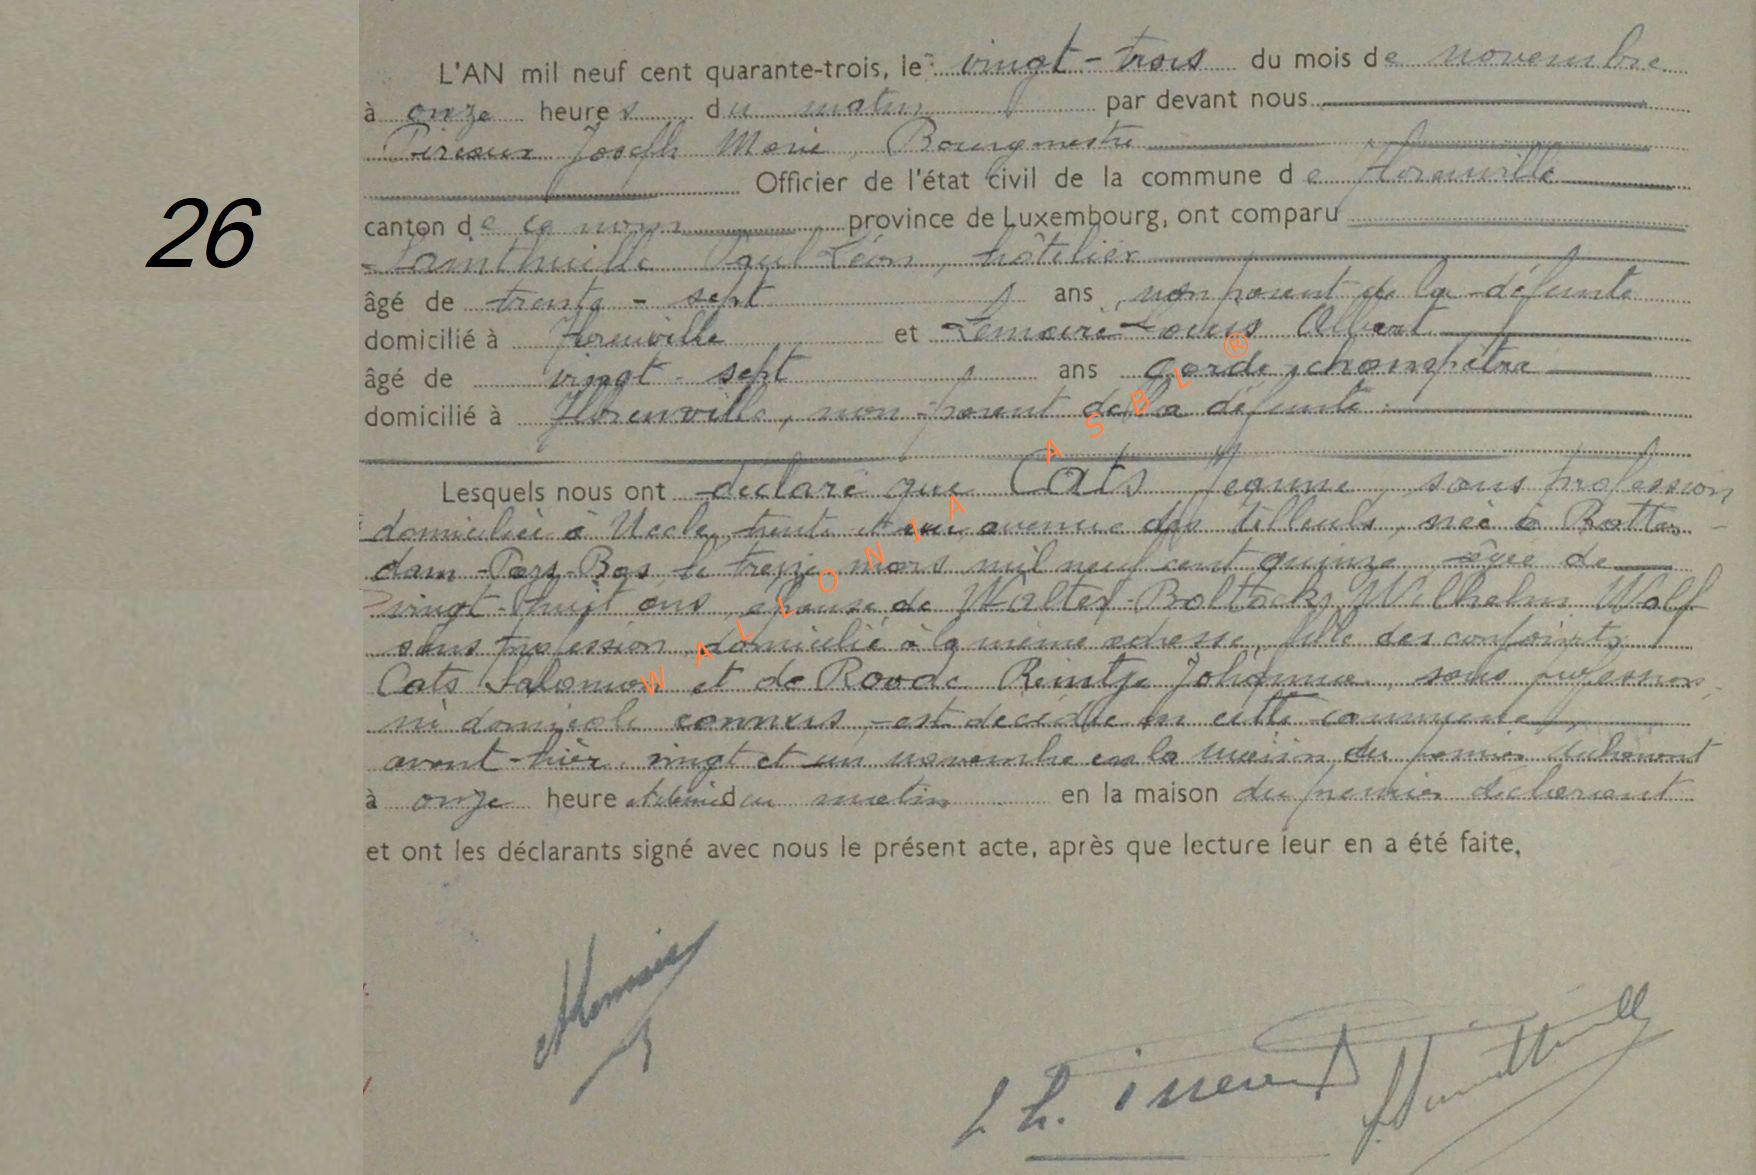 26
L'AN mil neuf cent quarante-trois, le vingt-trois du mois de novembre
à onze heures du matin par devant nous
Pireaux Joseph Marie, Bourgmestre
Officier de l'état civil de la commune de Florenville
canton de ce nom province de Luxembourg, ont comparu
Paul Léon, hôtelier
âgé de trente-sept ans, non parent de la défunte
domicilié à Florenville et Lemaire Louis Albert
âgé de vingt-sept ans garde champêtre
domicilié à Florenville, non parent de la défunte
Lesquels nous ont déclaré que Cats Jeanne, sans profession
domiciliée à Uccle, trente et un avenue des Tilleuls, née à Rotter
dam Pays-Bas le treize mars mil neuf cent quinze, âgée de
vingt-huit ans, épouse de Walter Wilhelm Wolf
sans profession, domicilié à la même adresse, fille des conjoints
Cats Salomon et de Roode Reintje Johanna, sans profession
ni domicile connus, est décédée en cette commune,
avant-hier, vingt et un novembre en la maison du premier déclarant
à onze heure et demie du matin en la maison du premier déclarant
et ont les déclarants signé avec nous le présent acte, après que lecture leur en a été faite,
WALLONIA ASBL ®